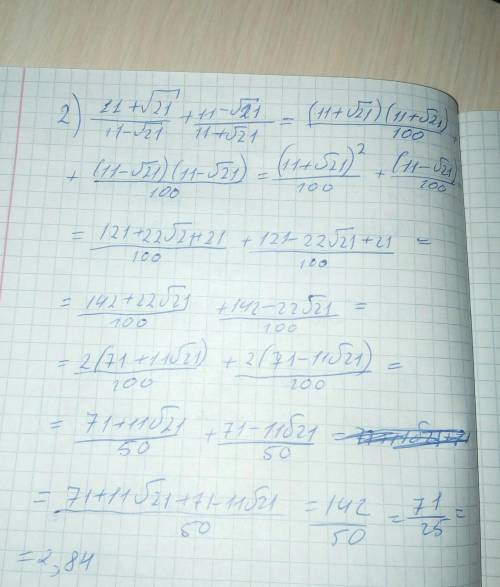 2) (11+√21)/(11-√21) + (11-√21)/(11+√21) = ((11+√21)(11+√21))/100
+ ((11-√21)(11-√21))/100 = (11+√21)²/100 + (11-√21)/100
= (121+22√21+21)/100 + (121-22√21+21)/100 =
= (142+22√21)/100 + (142-22√21)/100 =
= 2(71+11√21)/100 + 2(71-11√21)/100 =
= (71+11√21)/50 + (71-11√21)/50 =
= (71+11√21+71-11√21)/50 = 142/50 = 71/25 =
= 2,84